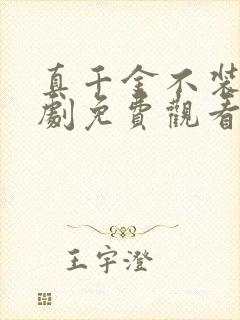 真千金不装
劇免費觀看
王宇澄